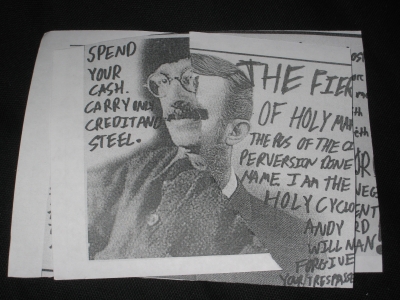 SPEND
YOUR
CASH.
CARRY ONLY
CREDIT AND
STEEL.
THE FIER
OF HOLY MAN
THE POS OF THE CL
PERVERSION DONE
NAME I AM THE
HOLY CYCLO
ANDY
WILL NAN!
FORGIVE
YOUR TRESPASSE